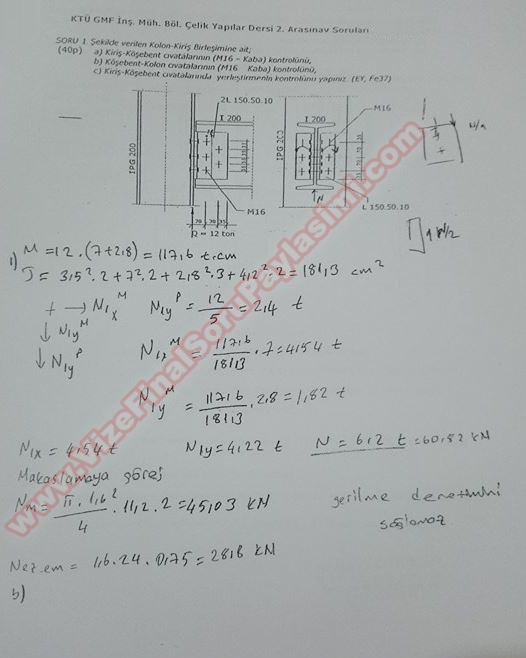 KTÜ GMF İnş. Müh. Böl. Çelik Yapılar Dersi 2. Arasınav Soruları
SORU 1. Şekilde verilen Kolon-Kiriş Birleşimine ait;
(40p) a) Kiriş-Köşebent cıvatalarının (M16 – Kaba) kontrolünü,
b) Köşebent-Kolon cıvatalarının (M16 Kaba) kontrolünü,
c) Kiriş-Köşebent cıvatalarında yerleştirmenin kontrolünü yapınız. (EY, Fe37)
2L 150.50.10
I 200
IPG 200
M16
70 70 35
Q = 12 ton
I 200
IPG 200
M16
L 150.50.10
N
N/2
www.VizeFinalSoruPaylasimi.com
1) M = 12 . (7+2,8) = 117,6 t.cm
J = 3,5².2 + 7².2 + 2,8².3 + 4,2².2 = 181,3 cm²
+ → N1x^M
↓ N1y^M
↓ N1y^P
N1y^P = 12/5 = 2,4 t
N1x^M = 117,6/181,3 . 7 = 4,54 t
N1y^M = 117,6/181,3 . 2,8 = 1,82 t
N1x = 4,54 t N1y = 4,22 t N = 6,2 t = 60,82 kN
Makaslamaya göre;
Nm = π.1,6²/4 . 11,2 . 2 = 45,03 KN
gerilme denetimini
sağlamaz
Nez.em = 1,6 . 24 . 0,75 = 28,8 KN
b)